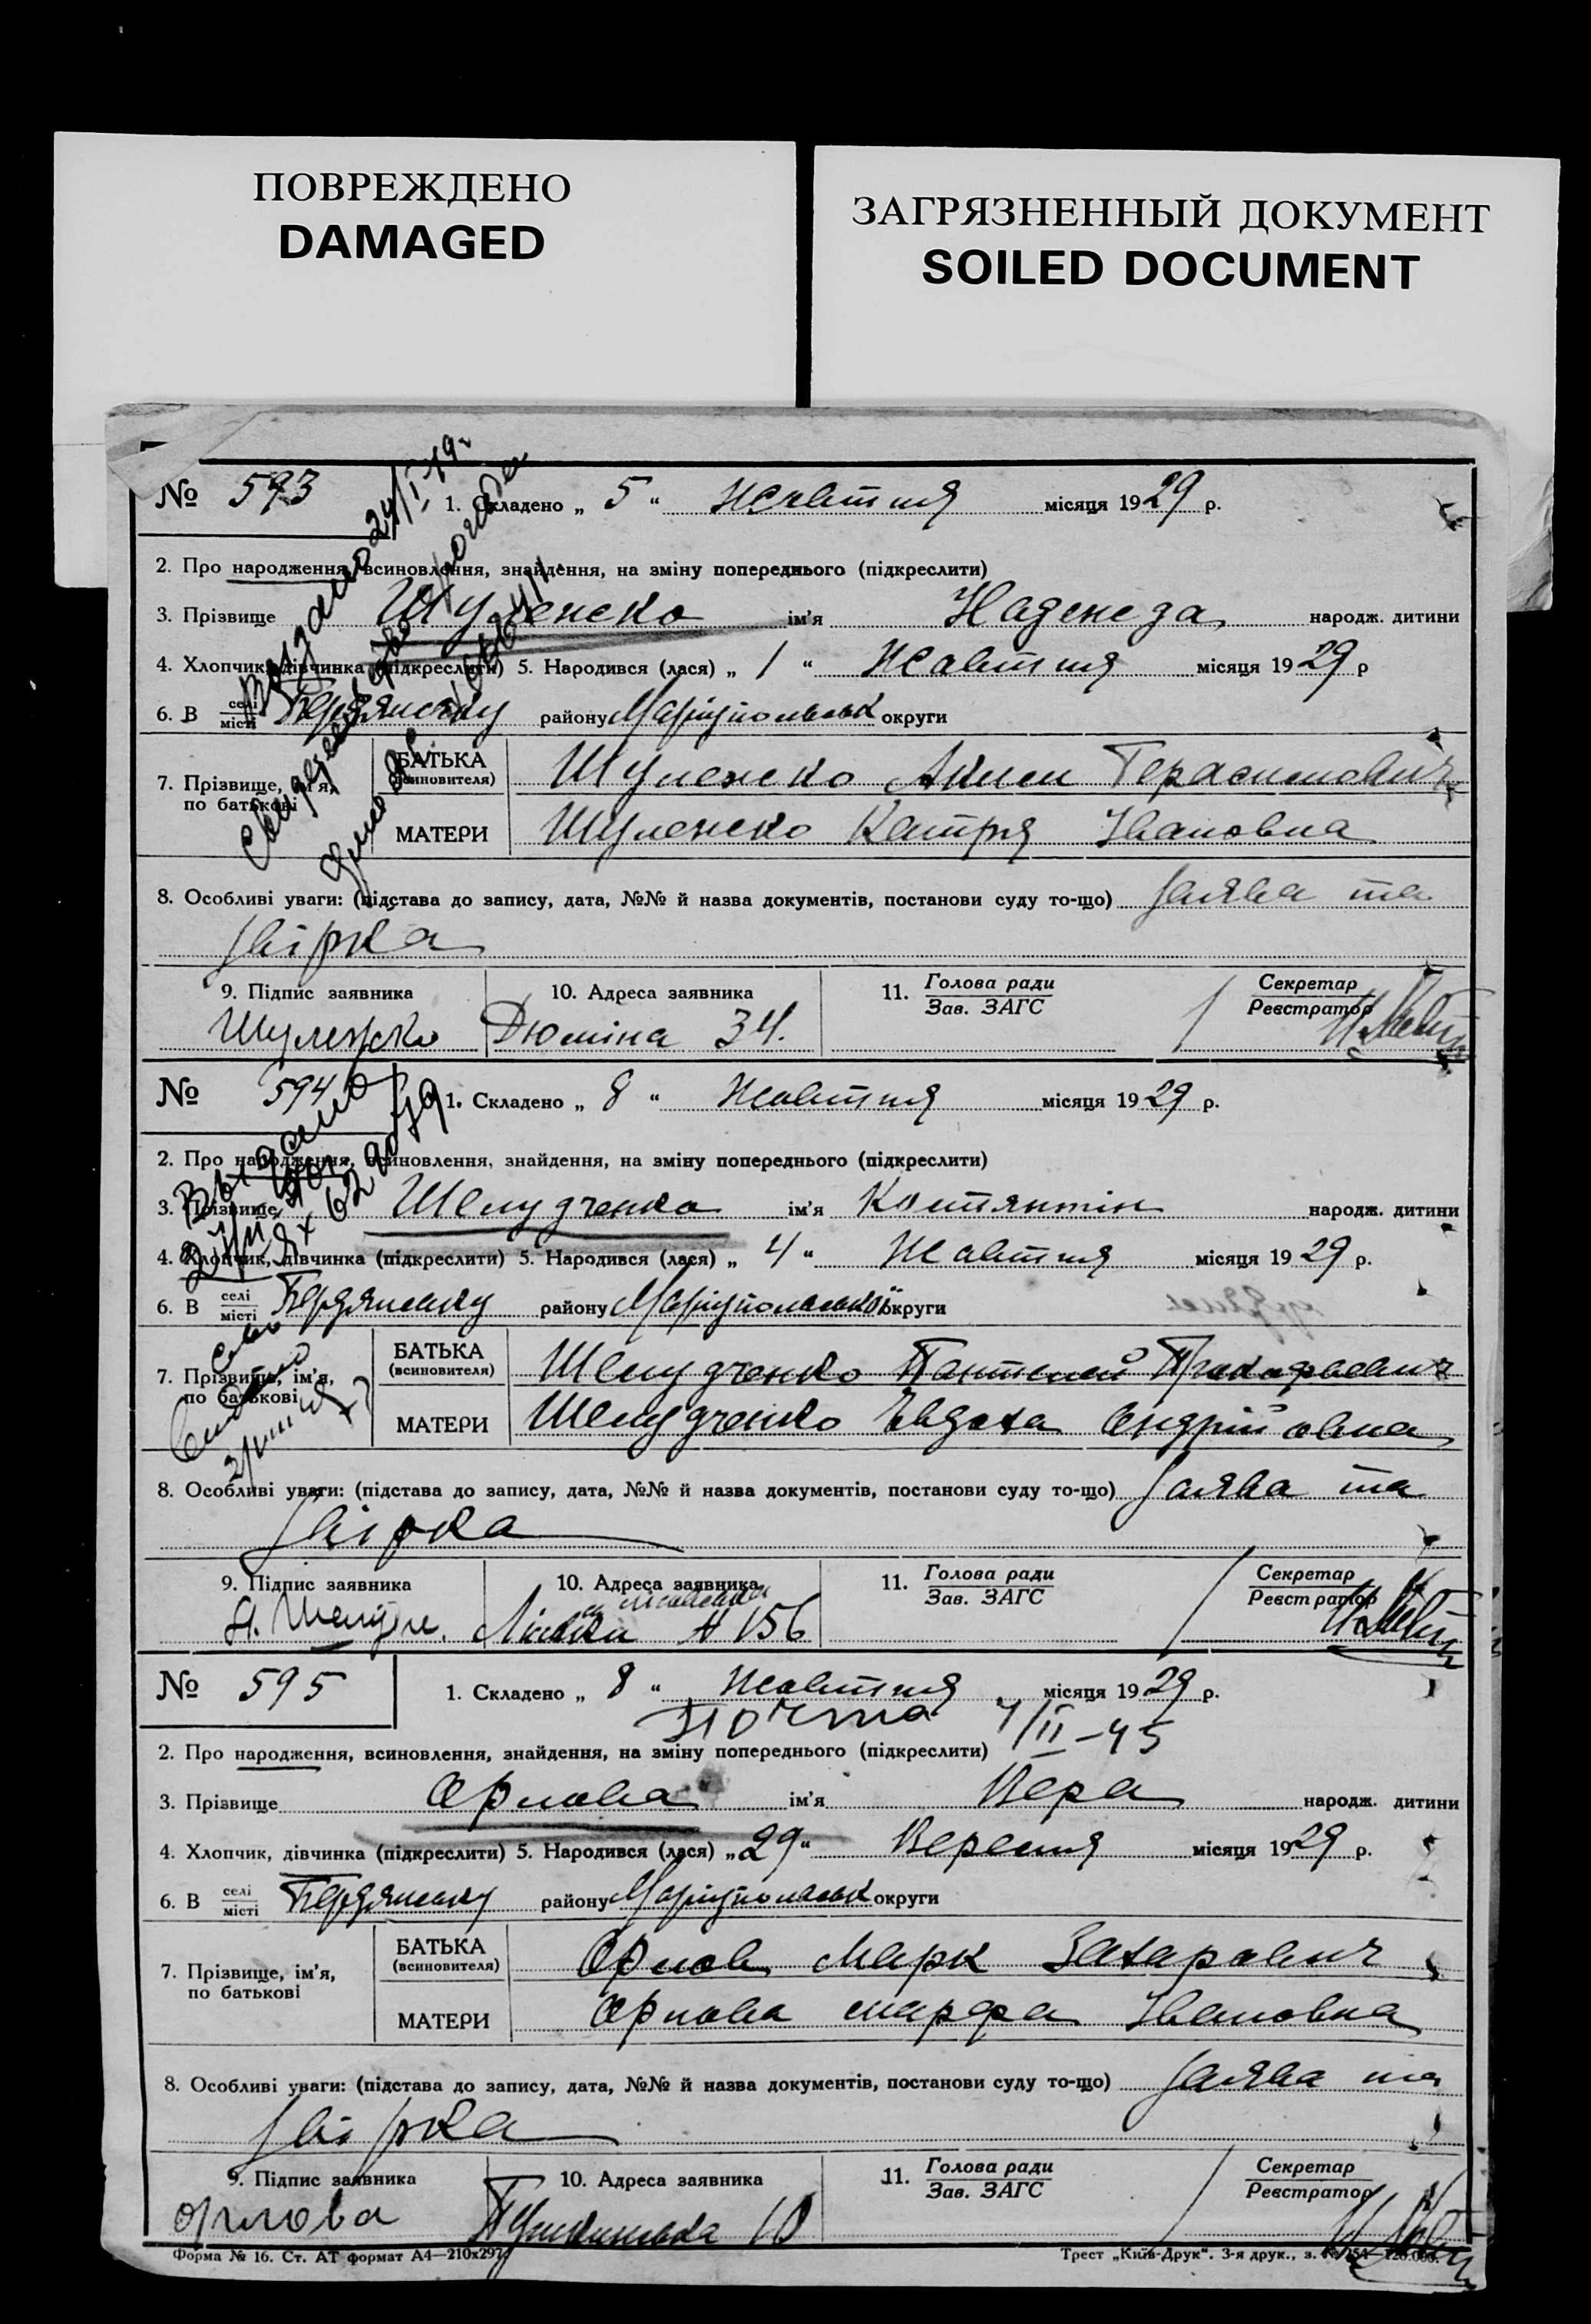 ПОВРЕЖДЕНО
DAMAGED
ЗАГРЯЗНЕННЫЙ ДОКУМЕНТ
SOILED DOCUMENT
№ 593 1. Складено „ 5 “ Жовтня місяця 1929 р.
2. Про народження, всиновлення, знайдення, на зміну попереднього (підкреслити)
3. Прізвище Шуленско ім'я Надежда народж. дитини
4. Хлопчик, дівчинка (підкреслити) 5. Народився (лася) „ 1 “ Жовтня місяця 1929 р
6. В селі місті Бердянську району Маріупольськ округи
7. Прізвище, ім'я, по батькові
БАТЬКА (всиновителя) Шуленско Аким Герасимович
МАТЕРИ Шуленско Катря Івановна
8. Особливі уваги: (підстава до запису, дата, №№ й назва документів, постанови суду то-що) Заява та
звірка
9. Підпис заявника 10. Адреса заявника 11. Голова ради Зав. ЗАГС Секретар Реєстратор
Дюміна 34.
№ 594 1. Складено „ 8 “ Жовтня місяця 1929 р.
2. Про народження, всиновлення, знайдення, на зміну попереднього (підкреслити)
3. Прізвище Шелудченко ім'я Костянтін народж. дитини
4. Хлопчик, дівчинка (підкреслити) 5. Народився (лася) „ 4 “ Жовтня місяця 1929 р.
6. В селі місті Бердянську району Маріупольської округи
7. Прізвище, ім'я, по батькові
БАТЬКА (всиновителя) Шелудченко Пантелей
МАТЕРИ Шелудченко Евдоха Андрійовна
8. Особливі уваги: (підстава до запису, дата, №№ й назва документів, постанови суду то-що) Заява та
звірка
9. Підпис заявника 10. Адреса заявника 11. Голова ради Зав. ЗАГС Секретар Реєстратор
156
№ 595 1. Складено „ 8 “ Жовтня місяця 1929 р.
Почта 4/II-45
2. Про народження, всиновлення, знайдення, на зміну попереднього (підкреслити)
3. Прізвище Орлова ім'я Вера народж. дитини
4. Хлопчик, дівчинка (підкреслити) 5. Народився (лася) „ 29 “ Вересня місяця 1929 р.
6. В селі місті Бердянську району Маріупольськ округи
7. Прізвище, ім'я, по батькові
БАТЬКА (всиновителя) Орлов Марк Захарович
МАТЕРИ Орлова марфа Івановна
8. Особливі уваги: (підстава до запису, дата, №№ й назва документів, постанови суду то-що) Заява та
звірка
9. Підпис заявника 10. Адреса заявника 11. Голова ради Зав. ЗАГС Секретар Реєстратор
Орлова Пушкинська 10
Форма № 16. Ст. АТ формат А4—210х297 Трест „Київ-Друк“. 3-я друк., з.